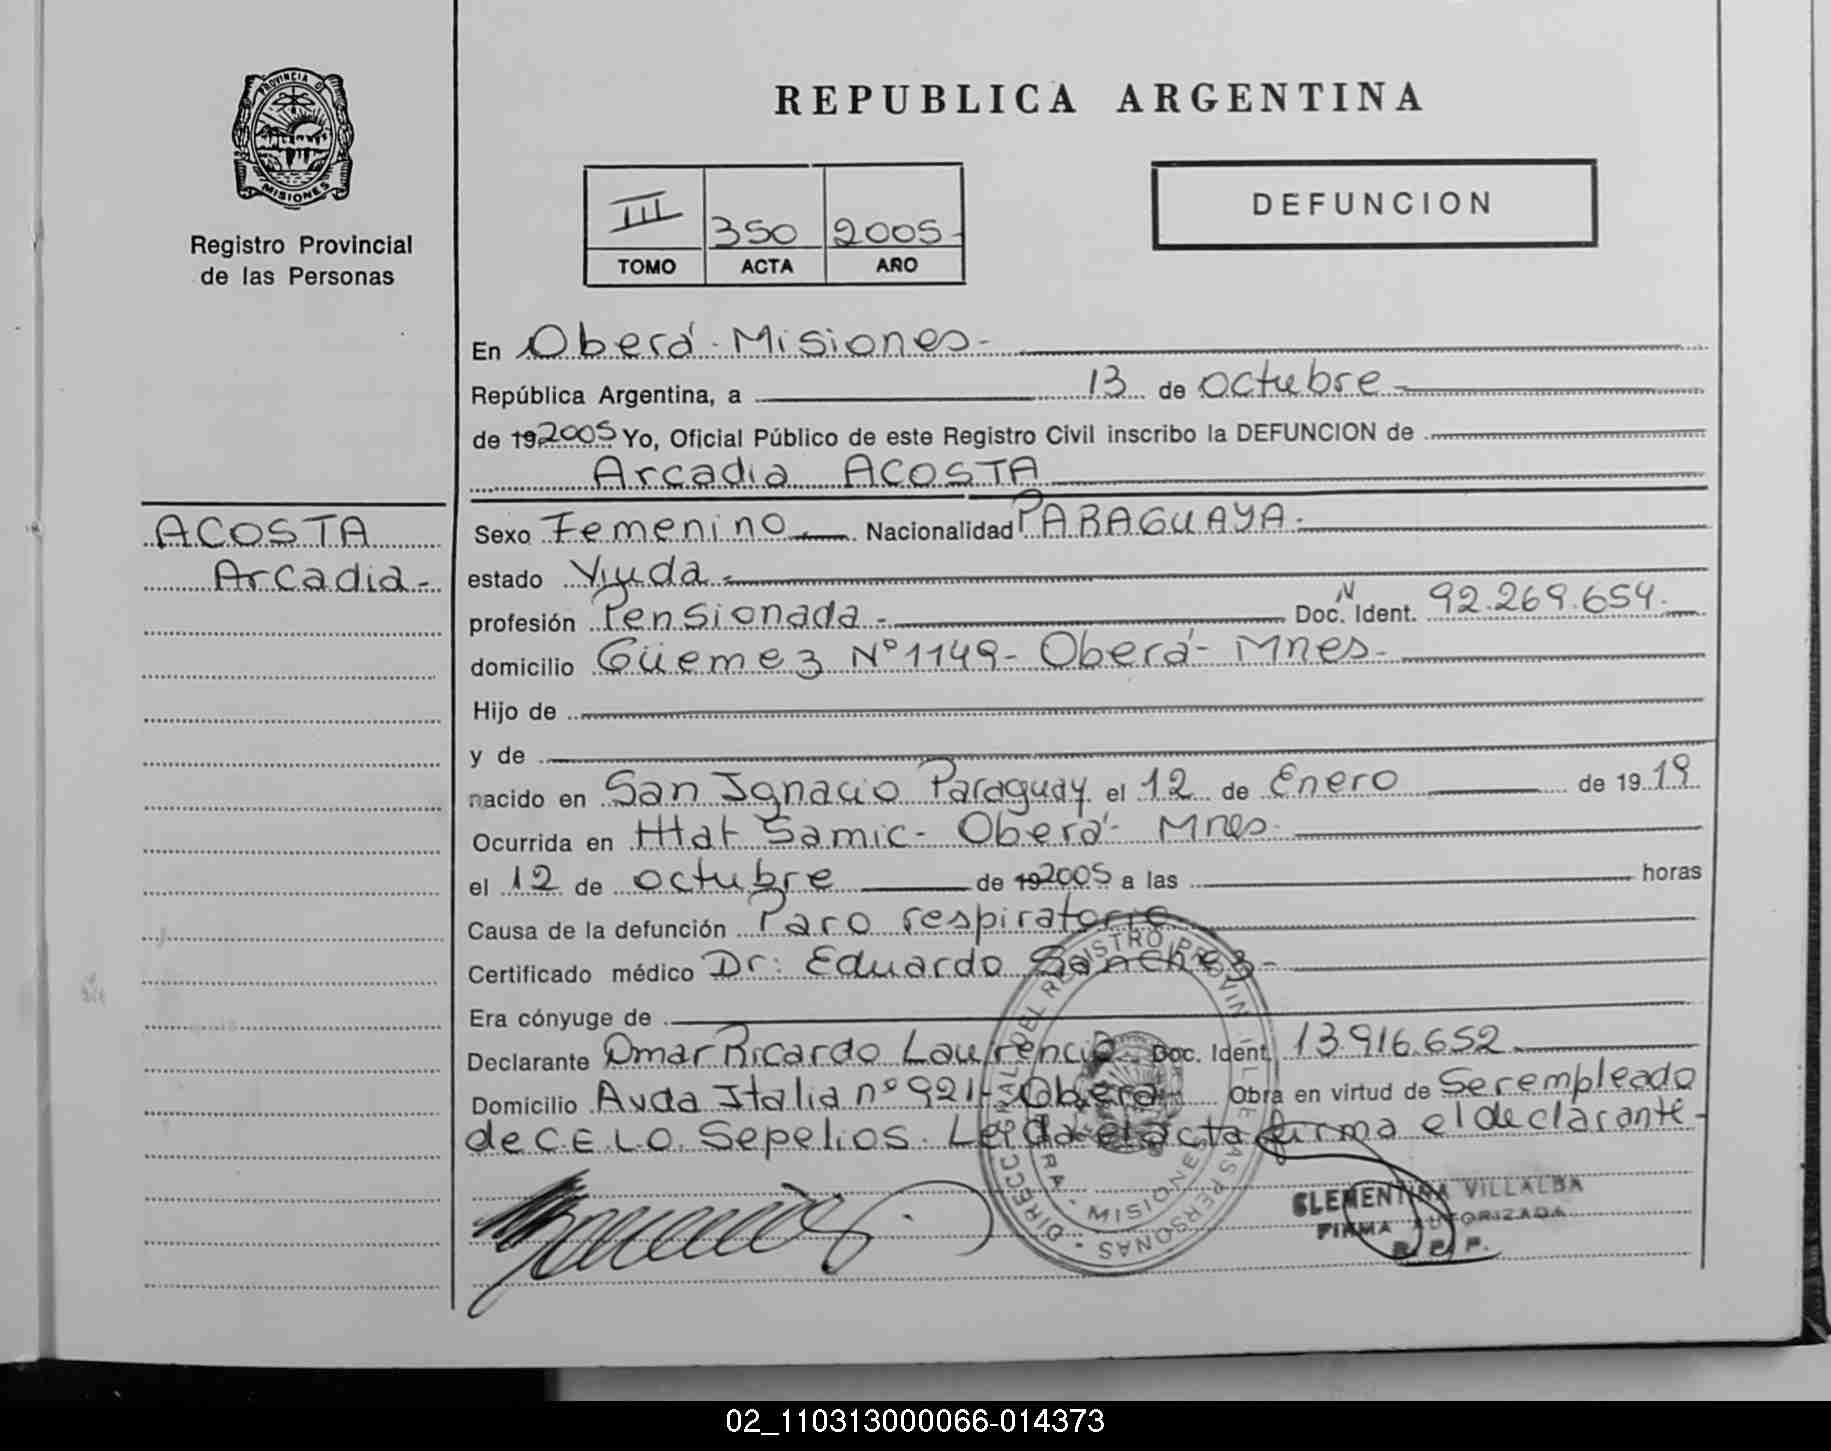 PROVINCIA D
MISIONES
Registro Provincial
de las Personas
REPUBLICA ARGENTINA
III 350 2005
TOMO ACTA AÑO
DEFUNCION
En Oberá - Misiones -
República Argentina, a 13 de octubre
de 19 2005 Yo, Oficial Público de este Registro Civil inscribo la DEFUNCION de
Arcadia ACOSTA
ACOSTA
Arcadia -
Sexo Femenino Nacionalidad PARAGUAYA -
estado Viuda -
profesión Pensionada - Doc. N Ident. 92.269.654.
domicilio Güemez Nº 1149 - Oberá - Mnes -
Hijo de
y de
nacido en San Ignacio Paraguay el 12 de Enero de 19 19
Ocurrida en Htal Samic - Oberá - Mnes -
el 12 de octubre de 19 2005 a las horas
Causa de la defunción Paro respiratorio
Certificado médico Dr: Eduardo Sanchez -
Era cónyuge de
Declarante Omar Ricardo Laurencio Doc. Ident. 13.916.652
Domicilio Avda Italia nº 921 - Oberá Obra en virtud de Ser empleado
de C.E.L.O. Sepelios. Leida el acta firma el declarante -
CLEMENTINA VILLALBA
FIRMA AUTORIZADA
R. P. P.
02_110313000066-014373